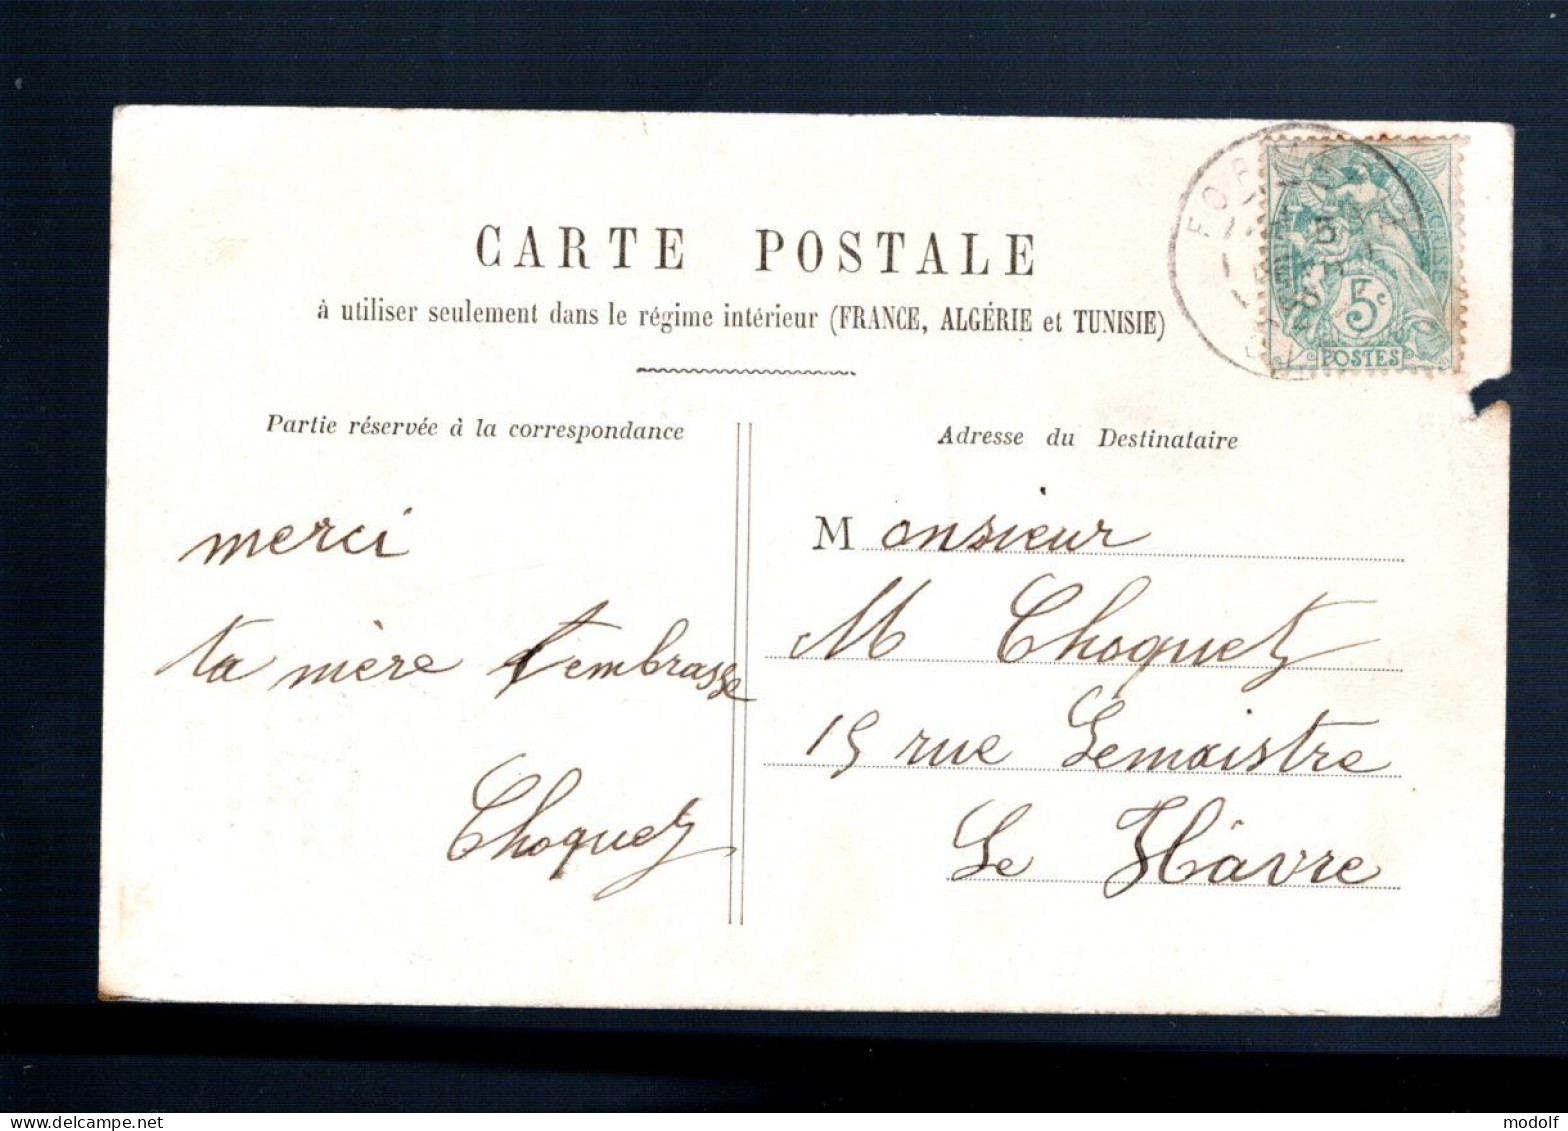 CARTE POSTALE
à utiliser seulement dans le régime intérieur (FRANCE, ALGÉRIE et TUNISIE)
Partie réservée à la correspondance
merci
ta mère t'embrasse
Choquet
Adresse du Destinataire
Monsieur
M Choquet
15 rue Lemaistre
Le Hâvre
5c
POSTES
modolf